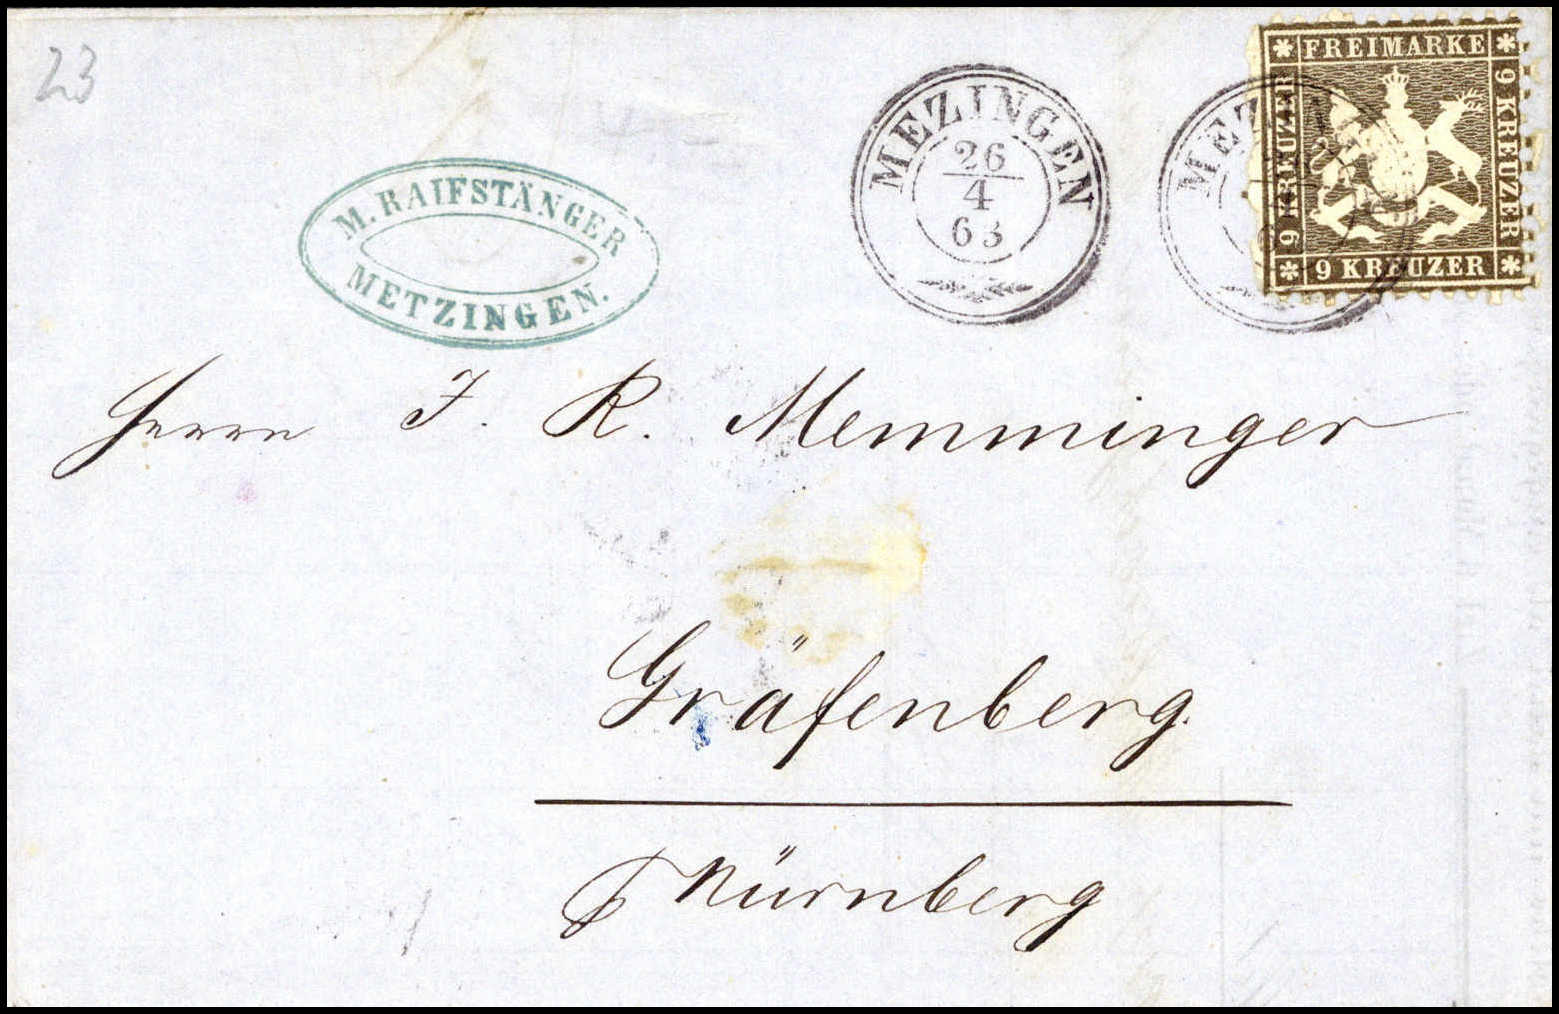 23
M. RAIFSTÄNGER
METZINGEN.
MEZINGEN
26
4
63
MEZ
FREIMARKE
9 KREUZER
9 KREUZER
9 KREUZER
Herrn J. R. Memminger
Gräfenberg.
Nürnberg